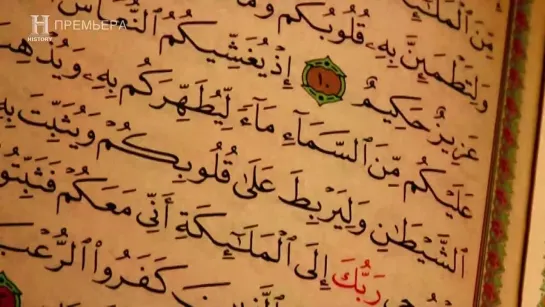 H ПРЕМЬЕРА
HISTORY
مِّنَ
وَلِتَطْمَئِنَّ بِهِۦ قُلُوبُكُمْ وَمَا
عَزِيزٌ حَكِيمٌ ١٠ إِذْ يُغَشِّيكُمُ ٱلنُّعَاسَ
عَلَيْكُم مِّنَ ٱلسَّمَآءِ مَآءً لِّيُطَهِّرَكُم بِهِۦ وَيُذْهِبَ
ٱلشَّيْطَٰنِ وَلِيَرْبِطَ عَلَىٰ قُلُوبِكُمْ وَيُثَبِّتَ بِهِ
رَبُّكَ إِلَى ٱلْمَلَٰٓئِكَةِ أَنِّى مَعَكُمْ فَثَبِّتُوا۟
ٱلَّذِينَ كَفَرُوا۟ ٱلرُّعْبَ